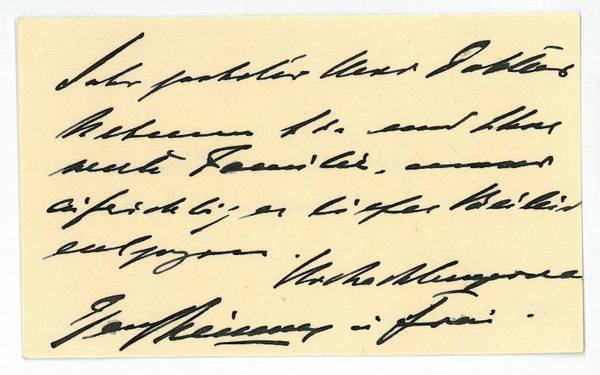 Sehr geehrter Herr Doktor
Nehmen Sie und Ihre
werte Familie, unser
aufrichtiges tiefes Beileid
entgegen.
Hochachtungsvoll
u Frau.